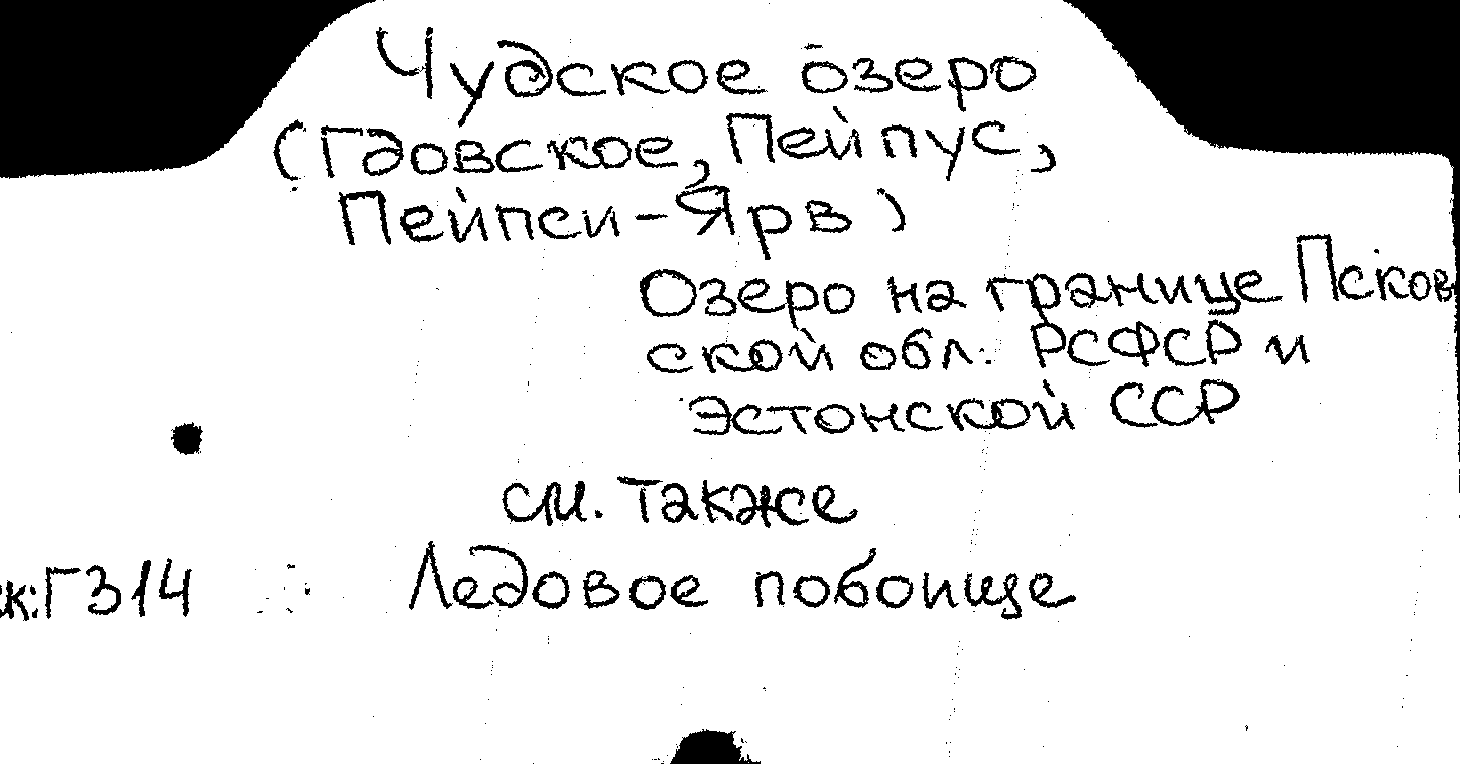 Чудское озеро
(Гдовское, Пейпус,
Пейпси-Ярв)
Озеро на границе Псков-
ской обл. РСФСР и
Эстонской ССР
см. также
Ледовое побоище
к:Г314